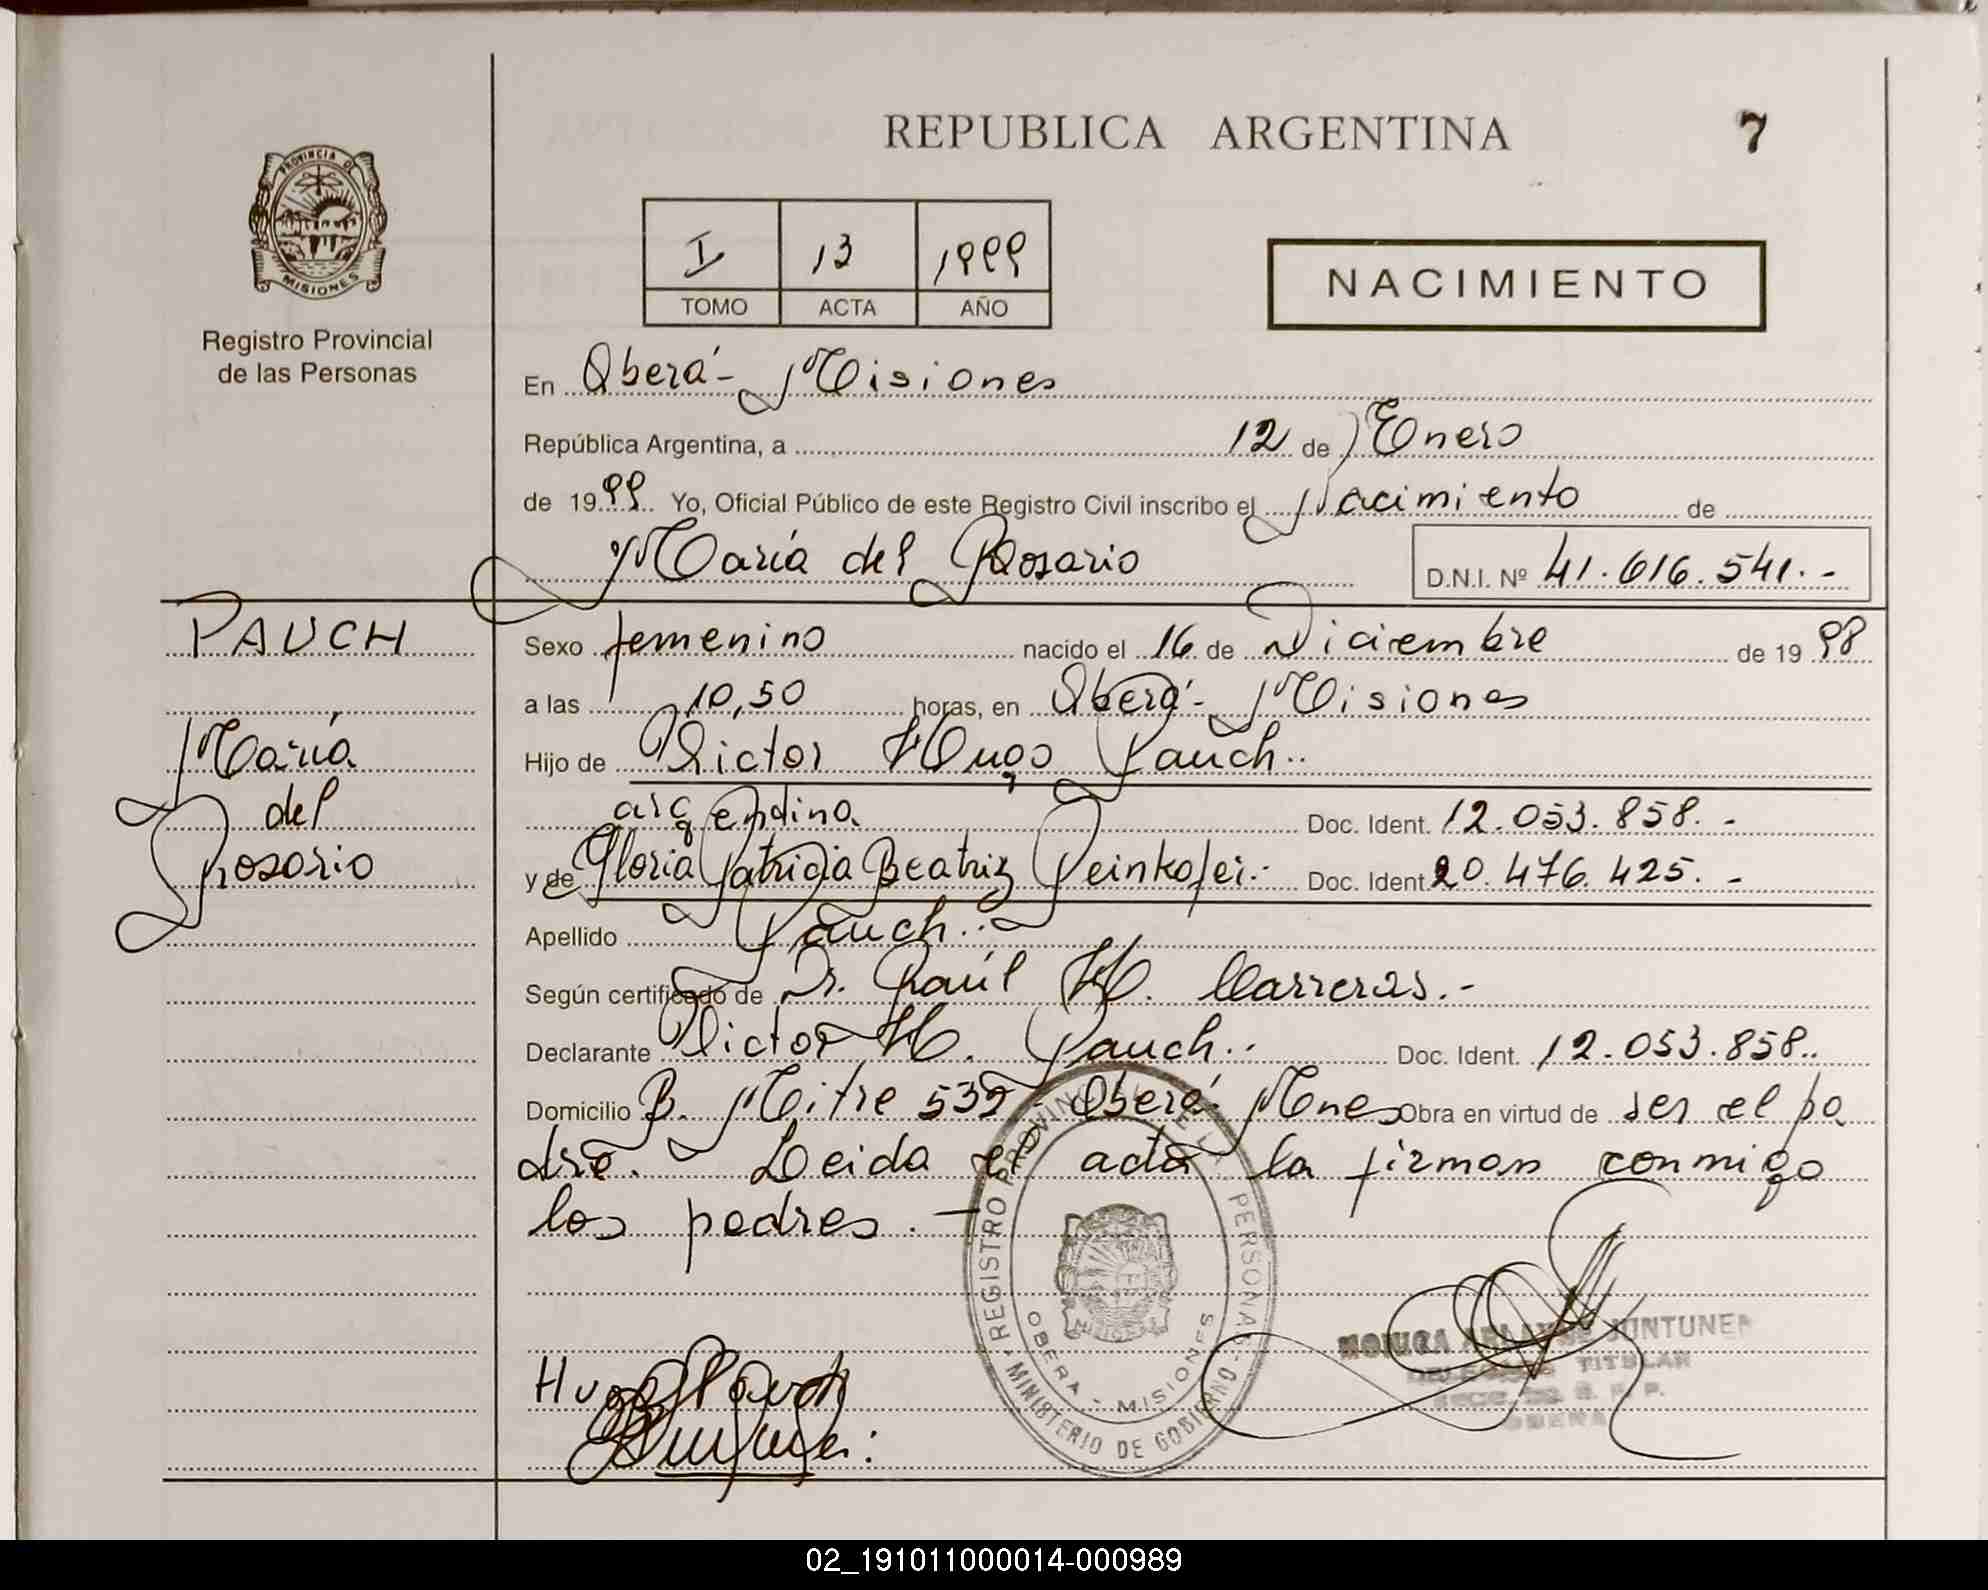 REPUBLICA ARGENTINA
7
PROVINCIA DE
MISIONES
Registro Provincial
de las Personas
I 13 1999
TOMO ACTA AÑO
NACIMIENTO
En Oberá - Misiones
República Argentina, a 12 de Enero
de 1999 Yo, Oficial Público de este Registro Civil inscribo el Nacimiento de
María del Rosario D.N.I. Nº 41.616.541.-
PAUCH
María
del
Rosario
Sexo femenino nacido el 16 de Diciembre de 1998
a las 10,50 horas, en Oberá - Misiones
Hijo de Victor Hugo Pauch..
argentina Doc. Ident. 12.053.858.-
y de Gloria Patricia Beatriz Peinkofer.- Doc. Ident. 20.476.425.-
Apellido Pauch..
Según certificado de Dr. Raúl H. Carreras.-
Declarante Victor H. Pauch.. Doc. Ident. 12.053.858..
Domicilio B. Mitre 532 - Oberá - Mnes Obra en virtud de ser el pa
dre. Leida el acta la firman conmigo
los padres.-
REGISTRO PROVINCIAL DE LAS PERSONAS
MINISTERIO DE GOBIERNO
OBERA - MISIONES
Hugo Pauch
JUNTUNEN
TITULAR
OBERA
02_191011000014-000989